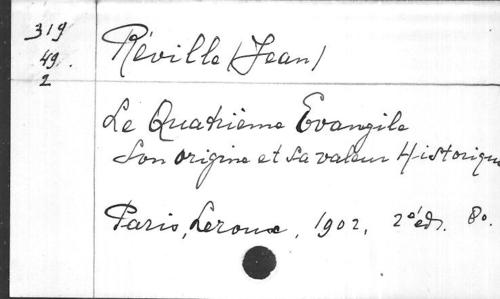 319
49.
2
Réville (Jean)
Le Quatrième Evangile
Son origine et sa valeur Historique
Paris, Leroux, 1902, 2e éd. 8o.